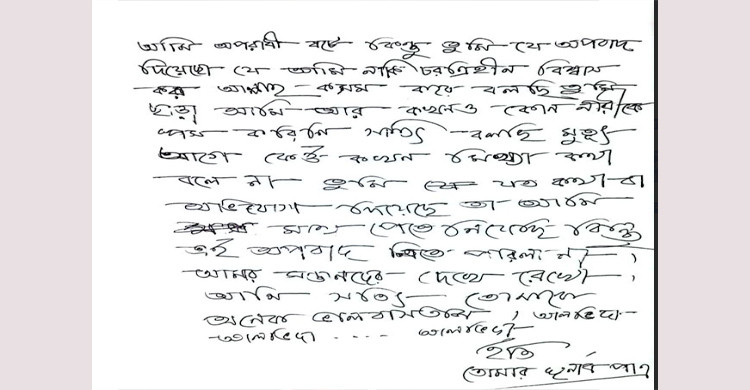 আমি অপরাধী বটে কিন্তু তুমি যে অপবাদ
দিয়েছো যে আমি নাকি চরিত্রহীন বিশ্বাস
কর আল্লাহ কসম করে বলছি তুমি
ছাড়া আমি আর কখনও কোন নারীকে
স্পর্শ করিনি সত্যি বলছি মৃত্যু
আগে কেউ কখন মিথ্যা কথা
বলে না তুমি যত কথা বা
অভিযোগ দিয়েছে তা আমি
মাথা পেতে নিয়েছি কিন্তু
এই অপবাদ নিতে পারলাম না,
আমার সন্তানদের দেখে রেখো,
আমি সত্যি তোমাকে
অনেক ভালবাসতাম, আলবিদা
আলবিদা .... আলবিদা
ইতি
তোমার